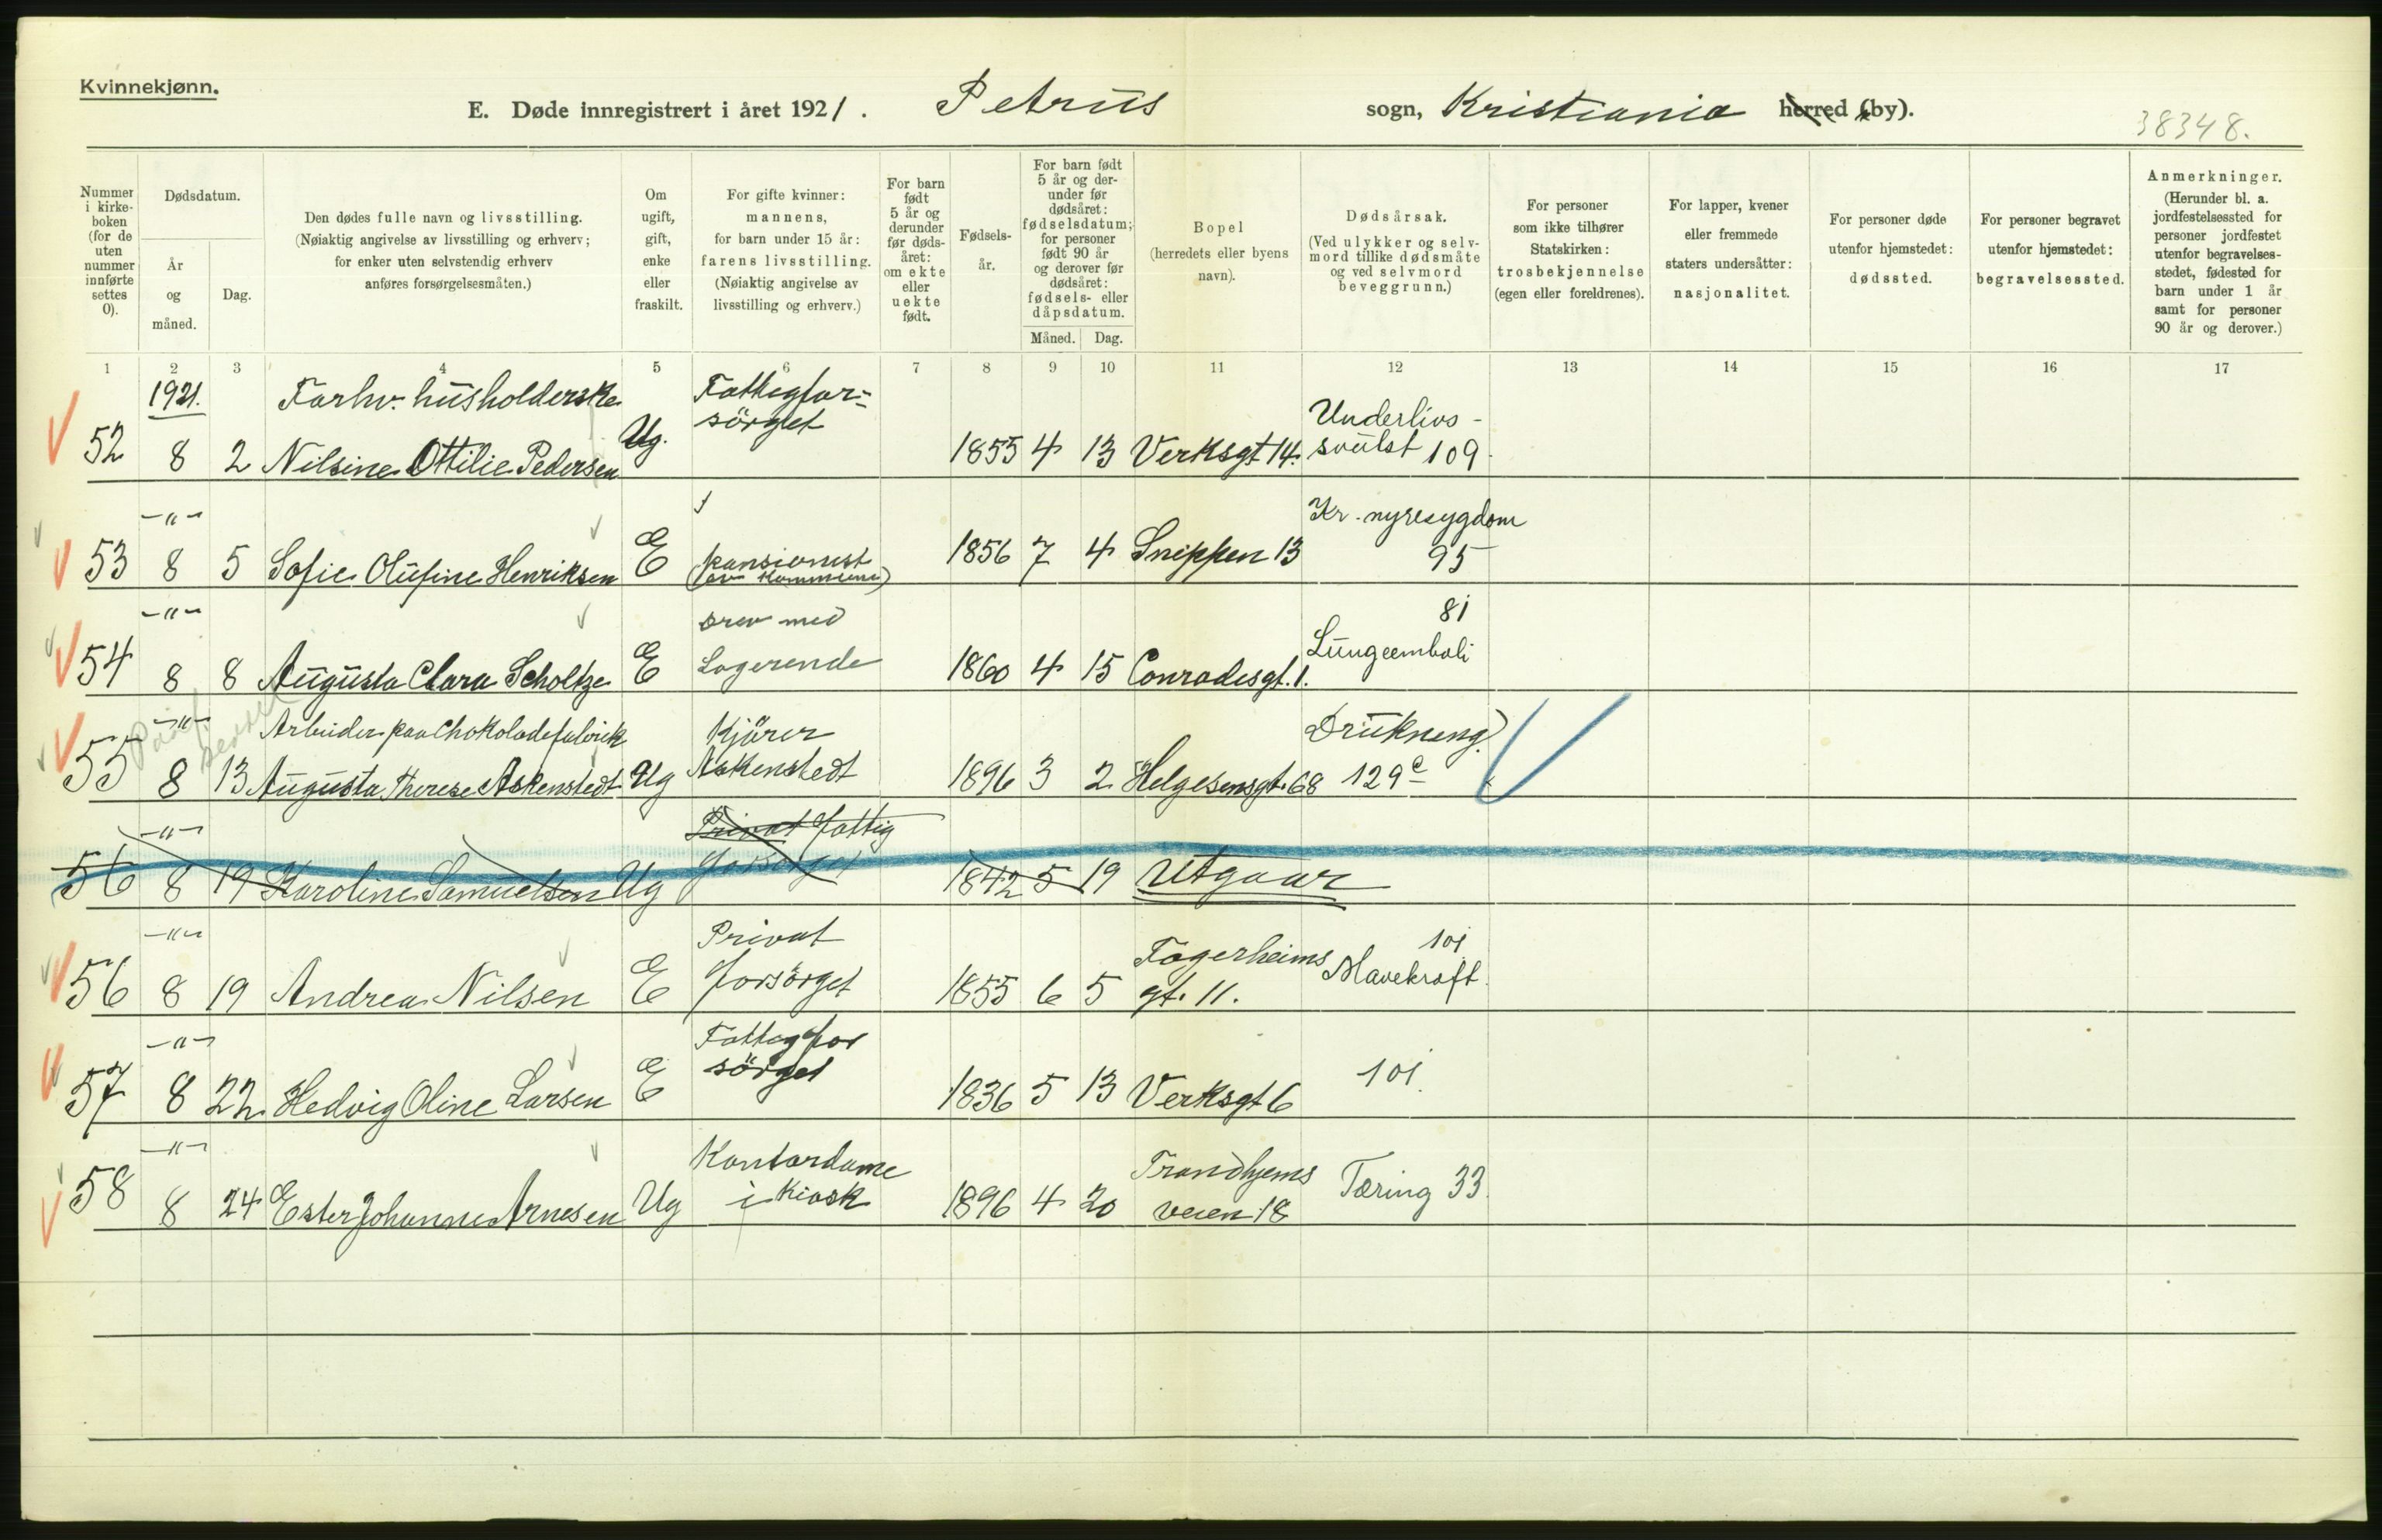 Kvinnekjønn.
E. Døde innregistrert i året 1921. Petrus sogn, Kristiania herred (by).
38348.
Nummer i kirkeboken (for de uten nummer innførte settes 0).
Dødsdatum.
År og måned.
Dag.
Den dødes fulle navn og livsstilling.
(Nøiaktig angivelse av livsstilling og erhverv;
for enker uten selvstendig erhverv
anføres forsørgelsesmåten.)
Om ugift, gift, enke eller fraskilt.
For gifte kvinner:
mannens,
for barn under 15 år:
farens livsstilling.
(Nøiaktig angivelse av
livsstilling og erhverv.)
For barn født 5 år og derunder før dødsåret: om ekte eller uekte født.
Fødselsår.
For barn født 5 år og derunder før dødsåret: fødselsdatum; for personer født 90 år og derover før dødsåret: fødsels- eller dåpsdatum.
Måned. Dag.
Bopel
(herredets eller byens
navn).
Dødsårsak.
(Ved ulykker og selvmord tillike dødsmåte og ved selvmord beveggrunn.)
For personer
som ikke tilhører
Statskirken:
trosbekjennelse
(egen eller foreldrenes).
For lapper, kvener
eller fremmede
staters undersåtter:
nasjonalitet.
For personer døde
utenfor hjemstedet:
dødssted.
For personer begravet
utenfor hjemstedet:
begravelsessted.
Anmerkninger.
(Herunder bl. a.
jordfestelsessted for
personer jordfestet
utenfor begravelses-
stedet, fødested for
barn under 1 år
samt for personer
90 år og derover.)
1 2 3 4 5 6 7 8 9 10 11 12 13 14 15 16 17
1921. Forhv. husholderske Fattigfor- Underlivs-
sörget
52 8 2 Nilsine Ottilie Pedersen Ug. 1855 4 13 Verksgt 14. svulst 109.
-"- Kr. nyresygdom
53 8 5 Sofie Olufine Henriksen E pensionist 1856 7 4 Snippen 13 95
(av kommune)
-"- Drev med 81
54 8 8 Augusta Clara Scholtze E Logerende 1860 4 15 Conradesgt. 1. Lungeemboli
-"- Arbeider paa Chokoladefabrik Kjörer Drukneng
55 8 13 Augusta Therese Askenstedt Ug Askenstedt 1896 3 2 Helgesensgt. 68 129c
-"- Privat fattig
forsörget
56 8 19 Karoline Samuelsen Ug 1842 5 19 Utgaar
-"- Privat Fagerheims 101
56 8 19 Andrea Nilsen E forsörget 1855 6 5 gt. 11. Mavekræft.
-"- Fattigfor
sörget
57 8 22 Hedvig Oline Larsen E 1836 5 13 Verksgt 6 101.
-"- Kontordame Trondhjems
58 8 24 Ester Johanne Arnesen Ug i Kiosk 1896 4 20 veien 18 Tæring 33.